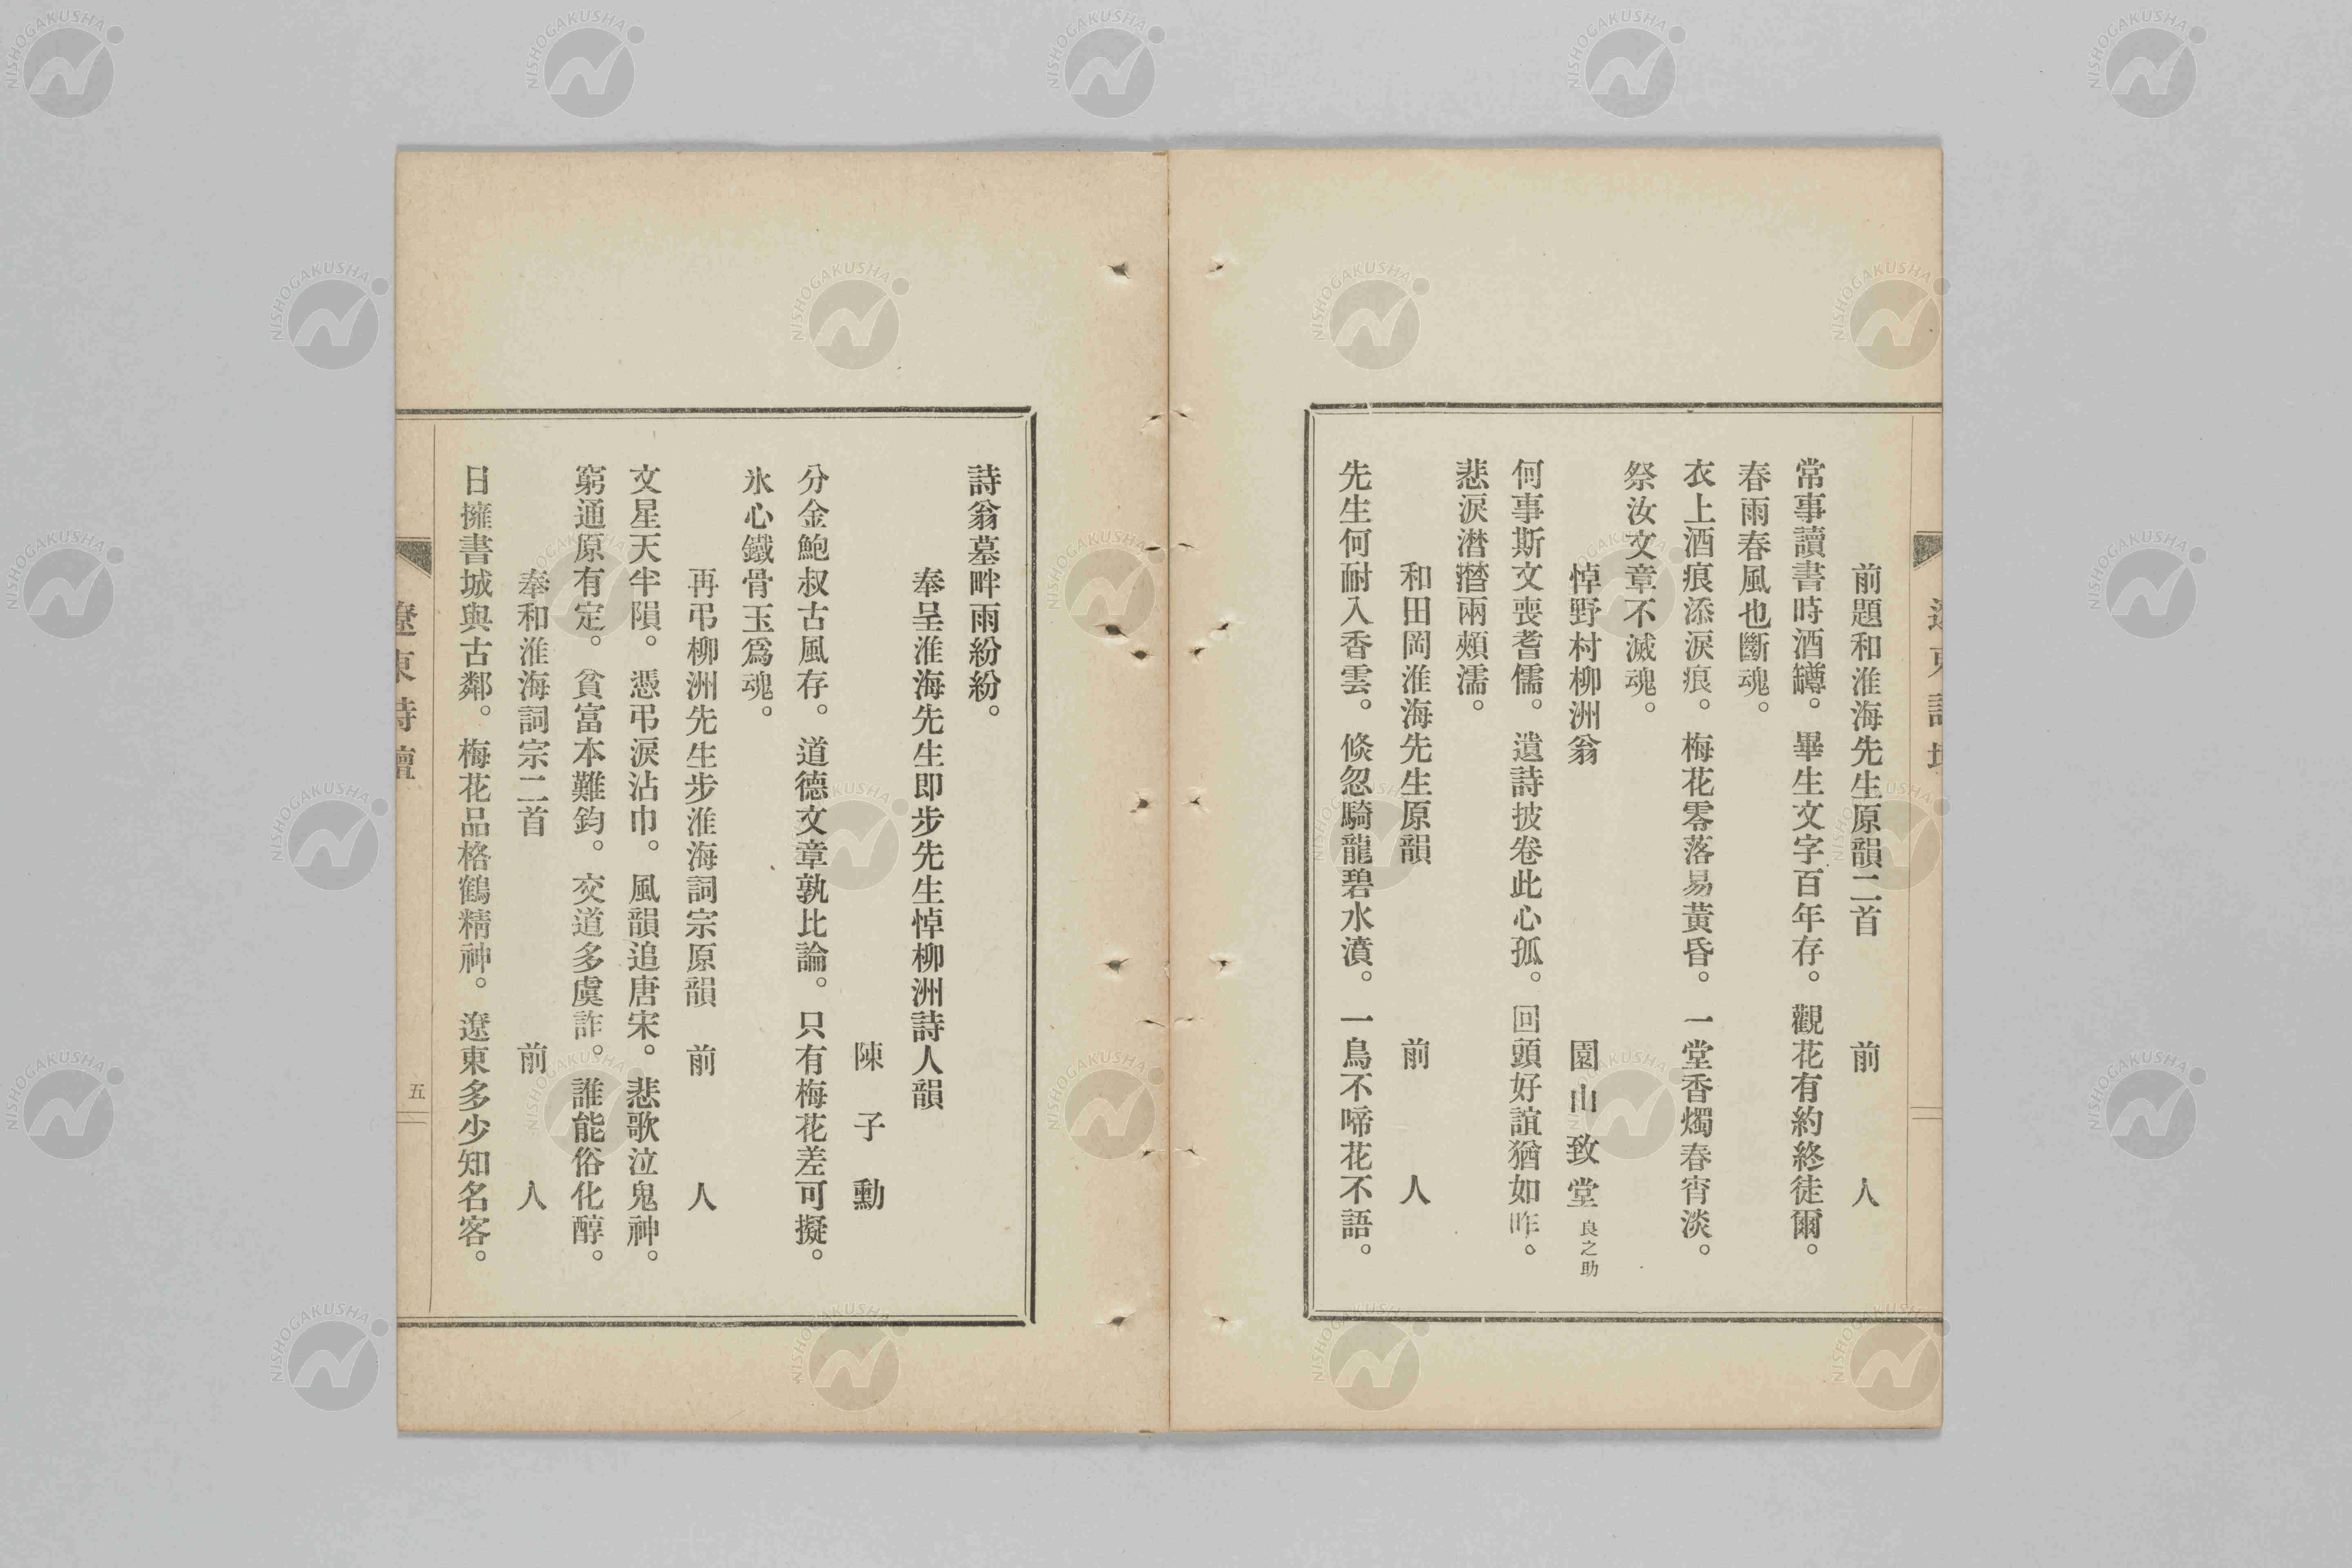 前題和淮海先生原韻二首 前人
常事讀書時酒罇。畢生文字百年存。觀花有約終徒爾。
春雨春風也斷魂。
衣上酒痕添淚痕。梅花零落易黃昏。一堂香燭春宵淡。
祭汝文章不滅魂。
悼野村柳洲翁 園山致堂 良之助
何事斯文喪耆儒。遺詩披卷此心孤。回頭好誼猶如昨。
悲淚潸潸兩頰濡。
和田岡淮海先生原韻 前人
先生何耐入香雲。倏忽騎龍碧水濆。一鳥不啼花不語。
詩翁墓畔雨紛紛。
奉呈淮海先生即步先生悼柳洲詩人韻
陳子勳
分金鮑叔古風存。道德文章孰比論。只有梅花差可擬。
氷心鐵骨玉爲魂。
再弔柳洲先生步淮海詞宗原韻 前人
文星天半隕。憑弔淚沾巾。風韻追唐宋。悲歌泣鬼神。
窮通原有定。貧富本難鈞。交道多虞詐。誰能俗化醇。
奉和淮海詞宗二首 前人
日擁書城與古鄰。梅花品格鶴精神。遼東多少知名客。
遼東詩壇
五
NISHOGAKUSHA